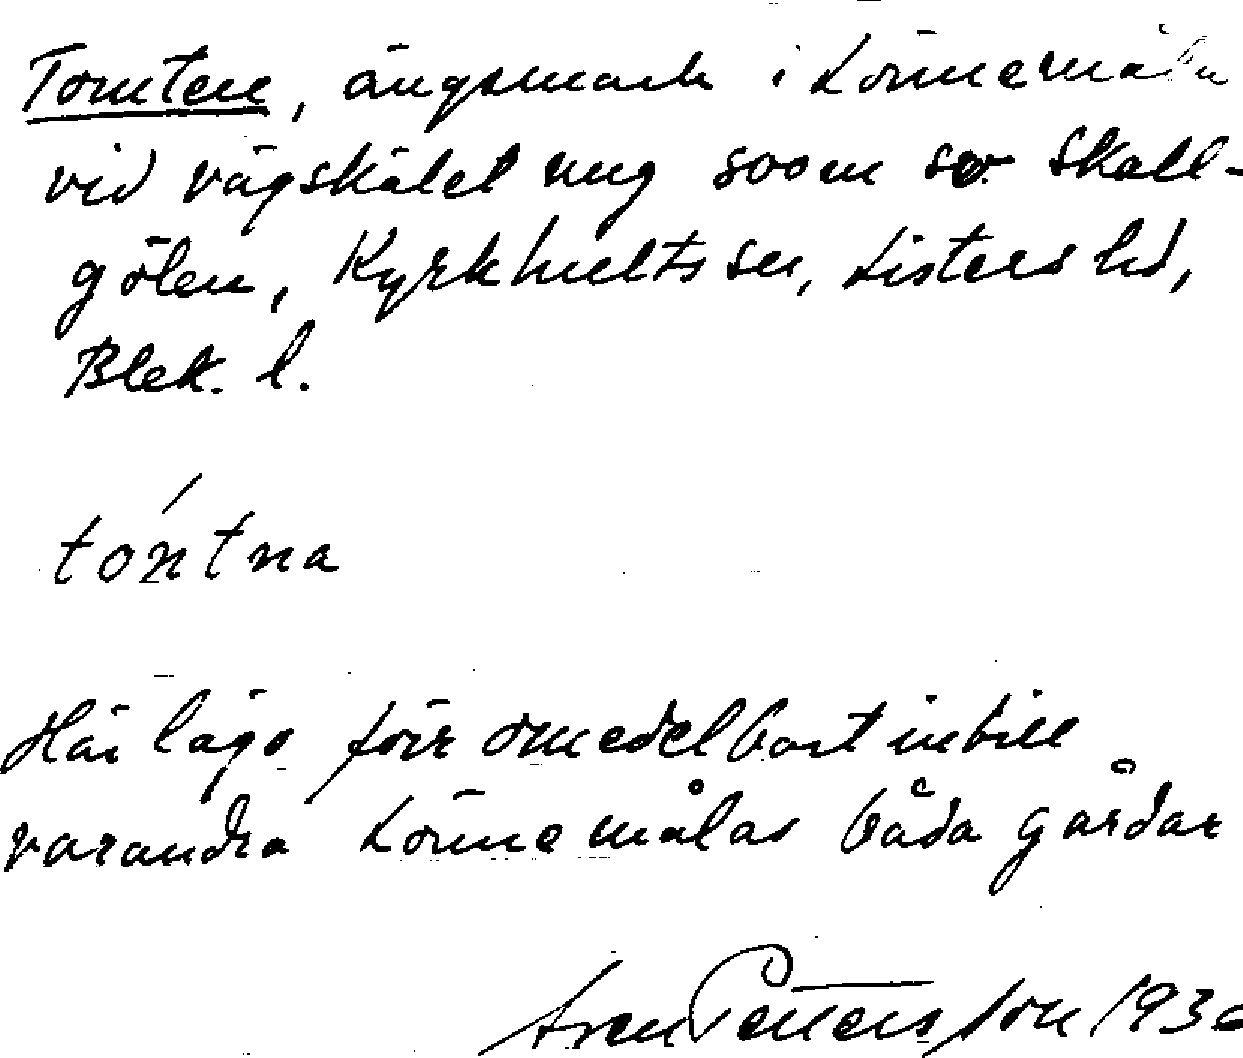 Tomten, ängsmark i Lönnemåla
vid vägskälet ung 500 m sv. Skall-
gölen, Kyrkhults sn, Listers hd,
Blek. l.
tóntna
Här lågo förr omedelbart intill
varandra Lönnemålas båda gårdar
Sven Petersson 193